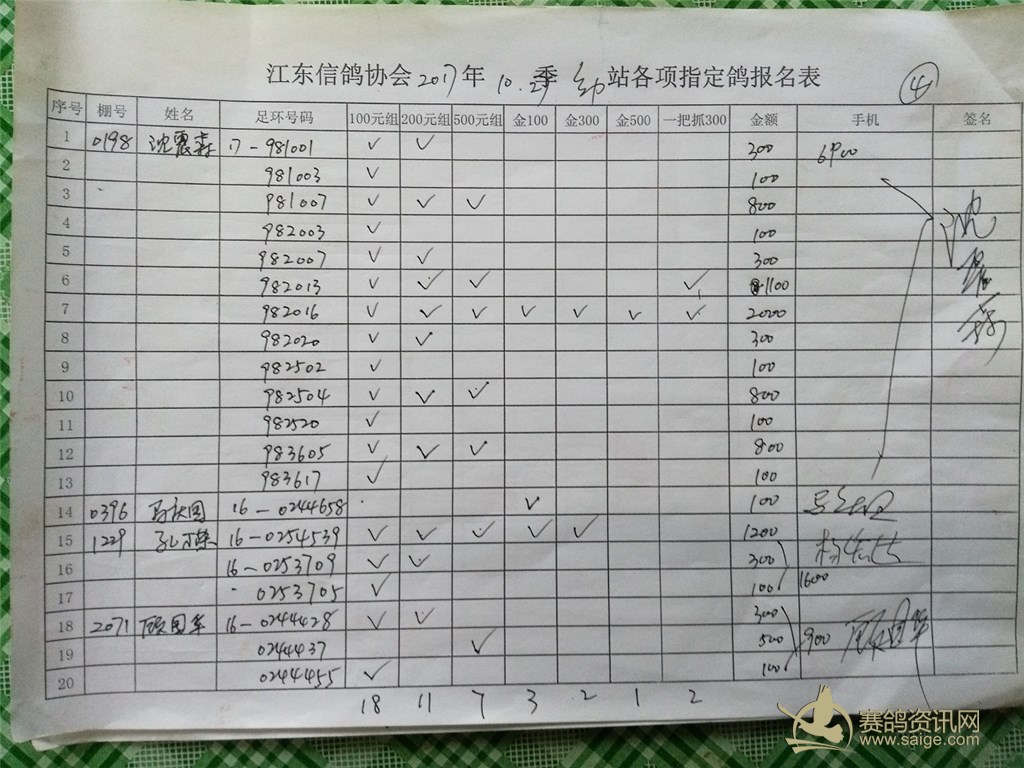 江东信鸽协会2017年10.季 幼站各项指定鸽报名表
④
序号 棚号 姓名 足环号码 100元组 200元组 500元组 金100 金300 金500 一把抓300 金额 手机 签名
1 0198 沈震森 17-981001 ✓ ✓ 300 6900
2 981003 ✓ 100
3 981007 ✓ ✓ ✓ 800
4 982003 ✓ 100
5 982007 ✓ ✓ 300
6 982013 ✓ ✓ ✓ ✓ 1100
7 982016 ✓ ✓ ✓ ✓ ✓ ✓ ✓ 2000
8 982020 ✓ ✓ 300
9 982502 ✓ 100
10 982504 ✓ ✓ ✓ 800
11 982520 ✓ 100
12 983605 ✓ ✓ ✓ 800
13 983617 ✓ 100
14 0396 16-0244658 ✓ 100
15 1229 16-0254539 ✓ ✓ ✓ ✓ ✓ 1200
16 16-0253709 ✓ ✓ 300
17 0253705 ✓ 100 1600
18 2071 顾国华 16-0244428 ✓ ✓ 300
19 0244437 ✓ 500 900 顾国华
20 0244455 ✓ 100
18 11 7 3 2 1 2
赛鸽资讯网
www.saige.com